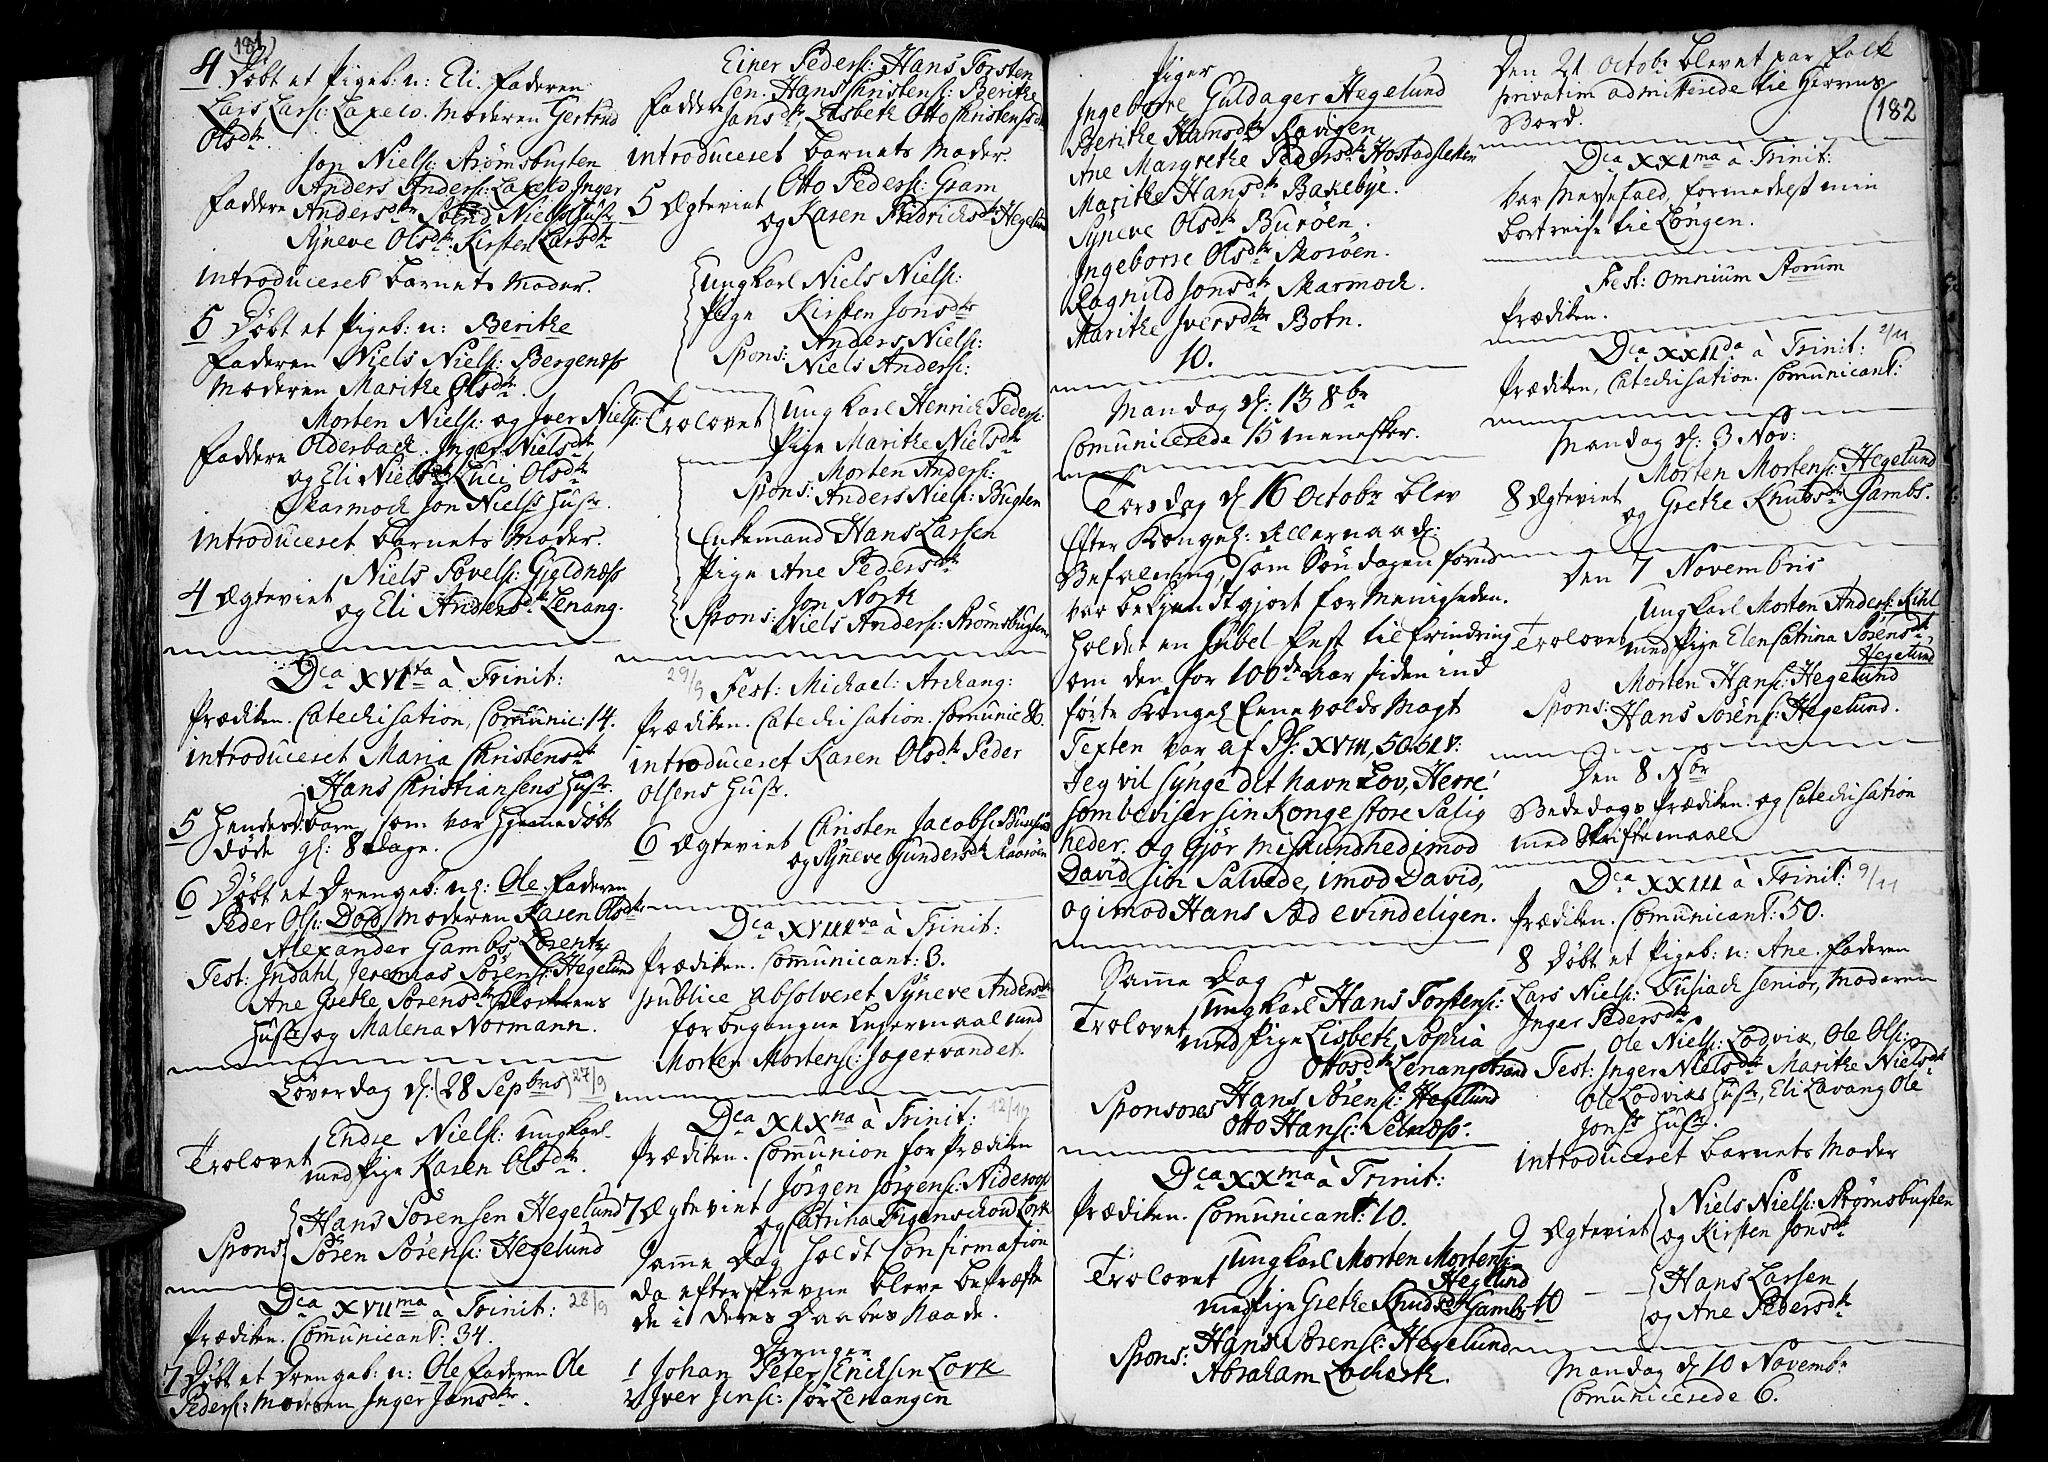 181)
4 Døbt et Pigeb: n: Eli. Faderen
Lars Larss: Laxelv. Moderen Gertrud
Olsdtr
Jon Niels: Strømsbugten
Anders Anderss: Laxelv Inger
Faddere Andersdtr Niels Hustr
Syneve Olsdtr Kirsten Larsdtr
introduceret barnets Moder.
5 Døbt et Pigeb: n: Berithe
Faderen Niels Niels: Bergenæss
Moderen Marithe Olsdtr.
Morten Niels: og Iver Niels:
Faddere Olderbach. Inger Nielsdtr
og Eli Nielsdtr Luci Olsdtr
Skarmoch Jon Niels: Hustr.
introduceret barnets Moder.
4 Ægteviet Niels Povels: Gieldnæss
og Eli Andersdtr Lenang.
Dca XVIta à Trinit:
Prædiken. Catechisation, Communic: 14.
introduceret Maria Christensdtr
Hans Christiansens Hustr.
5 Hendes barn som var hiemedøbt
døde gl: 8 Dage.
6 Døbt et Drengeb: n: Ole. Faderen
Peder Ols: Dods Moderen Karen Olsdtr
Alexander Gambs Lorentz
Test: Indahl, Jeremias Sørens: Hegelund
Ane Grethe Sørensdtr Klokerens
Hustr og Malena Normann.
Løverdag d: (28 Sepbris) 27/9
Trolovet Endre Niels: ungkarl
med Pige Karen Olsdtr.
Spons: Hans Sørensen Hegelund
Søren Sørens: Hegelund
Dca XVIIma à Trinit: 28/9
Prædiken. Communicant: 34.
7 Døbt et Drengeb: n: Ole Faderen Ole
Peders: Moderen Inger Jansdtr.
Einer Peders: Hans Torsten
sen. Hans Christens: Berithe
Faddere Jansdtr, Lisbeth Otto Christensdtr
introduceret barnets Moder
5 Ægteviet Otto Peders: Gram
og Karen Fridrichsdtr Hegelund
Ungkarl Niels Niels:
Pige Kirsten Jonsdtr
Spons: Anders Niels:
Niels Anders:
Trolovet Ungkarl Henrich Peders:
Pige Marithe Nielsdtr
Spons: Morten Anders:
Anders Niels: Bugten
Enkemand Hans Larsen
Pige Ane Pedersdtr
Spons: Jon North
Niels Anders: Strømsbugten
29/9 Fest: Michael: Archang:
Prædiken. Catechisation. Comunic 86.
introduceret Karen Olsdtr Peder
Olsens Hustr.
6 Ægteviet Christen Jacobs:
og Syneve Gundersdtr
Dca XVIIIva à Trinit:
Prædiken. Communicant: 3.
publice absolveret Syneve Andersdtr
for begangne Leiermaal med
Morten Mortens: Jægervandet.
Dca XIXna à Trinit: 12/10
Prædiken. Communion for Prædiken
7 Ægteviet Jørgen Jørgens: Nideros
og Catrina Figenschou Lork
Samme Dag holdt Confirmation
da efterskrevne bleve bekræfte
de i deres Daabes Naade.
Drenge
1 Johan Peter Ericksen Lork
2 Iver Jens: Sør Lenangen
(182
Piger
Ingeborre Guldager Hegelund
Berithe Hansdtr Ravigen
Ane Margrethe Pedersdtr Hostadsletten
Marithe Hansdtr Bakebye.
Syneve Olsdtr Burøen.
Ingeborre Olsdtr Skorøen.
Ragnild Jonsdtr Skarmoch.
Marithe Iversdtr Botn.
10.
Mandag d: 13 8br
Comunicerede 15 Mennesker.
Torsdag d 16 Octobr blev
Efter Kongel: Allernaad:
Befalning, som Søndagen forud
var bekiendtgiort for Menigheden.
holdet en Jubel Fest til Erindring
om den for 100de Aar siden ind
førte Kongel Eenevolds Magt
Texten var af Ps: XVIII, 50.51 V:
Jeg vil synge dit havn Lov, Herre!
som beviser sin Konge store Salig
heder. og Gjør Miskundhed imod
David sin Salvede, imod David,
og imod Hans Sæd evindeligen.
Samme Dag
Trolovet Ungkarl Hans Torstens:
med Pige Lisbeth Sophia
Ottosdtr Lenangstrand
Sponsores Hans Sørens: Hegelund
Otto Hans: Selnæss.
Dca XXma à Trinit:
Prædiken. Comunicant: 10.
Trolovet Ungkarl Morten Mortens:
Hegelund
med Pige Grethe Knudsdtr Gambs
Spons: Hans Sørens: Hegelund
Abraham Locherth.
Den 21 Octobr blevet par Folk
privatim admitterede til Herrens
Bord.
Dca XXIma à Trinit:
var Messefald, formedelst min
bortreise til Longen.
Fest: Omnium Storum
Prædiken.
Dca XXIIda à Trinit: 2/11
Prædiken, Catechisation. Communicant:
Mandag d: 3 Nov:
8 Ægteviet Morten Mortens: Hegelund
og Grethe Knudsdtr Gambs.
Den 7 Novembris
Ungkarl Morten Anders: Kihl
Trolovet med Pige Elen Catrina Sørensdtr
Hegelund
Spons: Morten Hans: Hegelund
Hans Sørens: Hegelund.
Den 8 Nor
Bededags Prædiken og Catechisation
med Skriftemaal
Dca XXIII à Trinit: 9/11
Prædiken. Comunicant: 50.
8 Døbt et Pigeb: n: Ane. Faderen
Lars Niels: Dusiach senior, Moderen
Inger Pedersdtr
Ole Niels: Lodvik, Ole Ols:
Test: Inger Nielsdtr Marithe Nielsdtr
Ole Lodviks Hustr, Eli Lavang Ole
Jons: Hustr.
introduceret barnets Moder
9 Ægteviet Niels Niels: Strømsbugten
og Kirsten Jonsdtr
10 — — Hans Larsen
og Ane Pedersdtr
Mandag d 10 Novembr
Comunicerede 6.